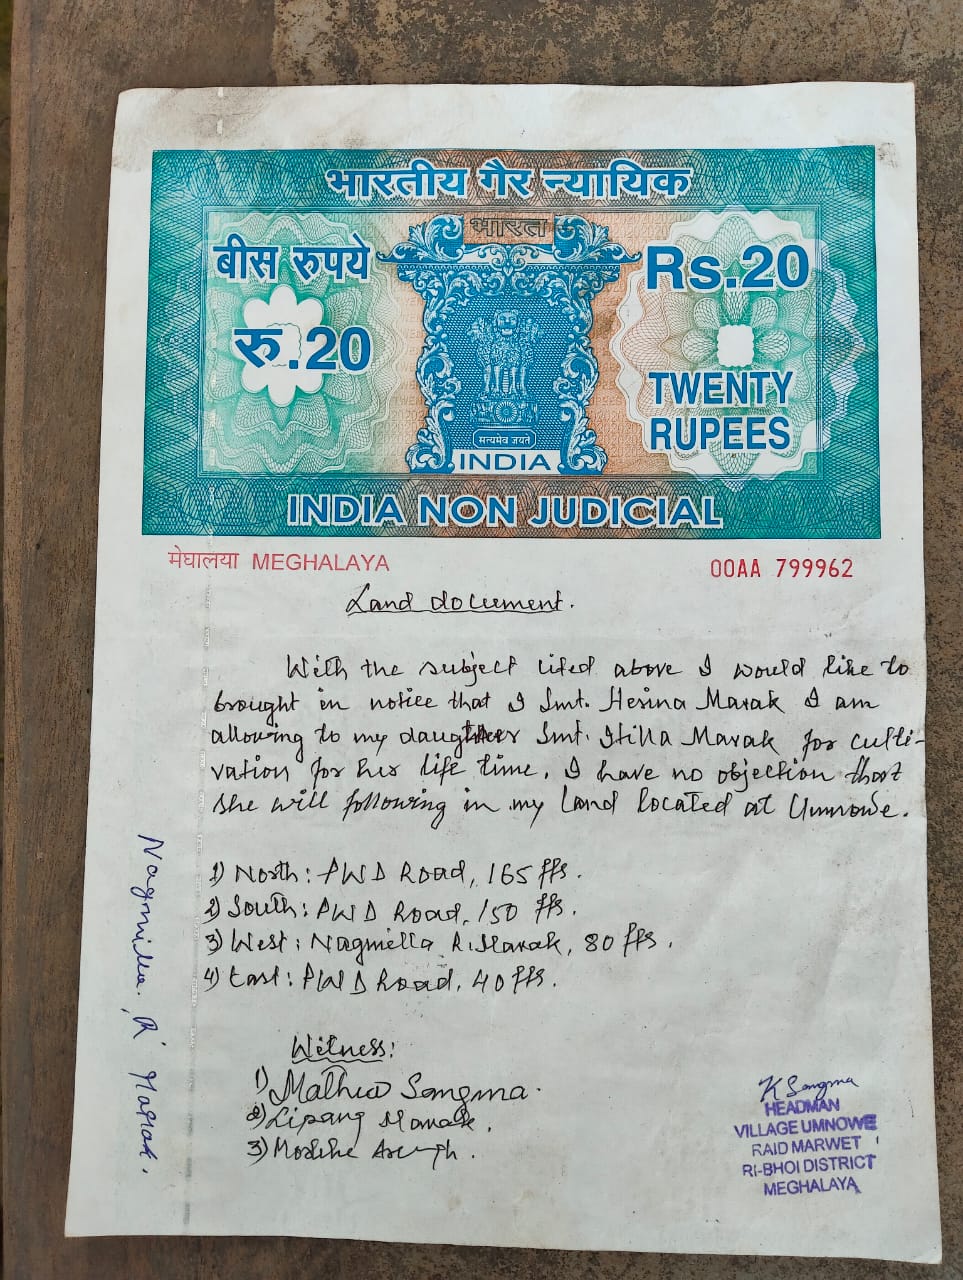 भारतीय गैर न्यायिक
भारत
बीस रुपये
Rs.20
रु.20
TWENTY
RUPEES
सत्यमेव जयते
INDIA
INDIA NON JUDICIAL
मेघालया MEGHALAYA
00AA 799962
Land document.
With the subject cited above I would like to
brought in notice that I Smt. Hesina Marak I am
allowing to my daughter Smt. Stilla Marak for culti-
vation for her life time. I have no objection that
she will following in my land located at Umnowe.
1) North: PWD Road, 165 ffs.
2) South: PWD Road, 150 ffs.
3) West: Nagmella R. Marak, 80 ffs.
4) East: PWD Road, 40 ffs.
Nagmilla. R Marak.
Witness:
1) Mathew Sangma.
2) Lipang Marak.
3)
K Sangma
HEADMAN
VILLAGE UMNOWE
RAID MARWET
RI-BHOI DISTRICT
MEGHALAYA